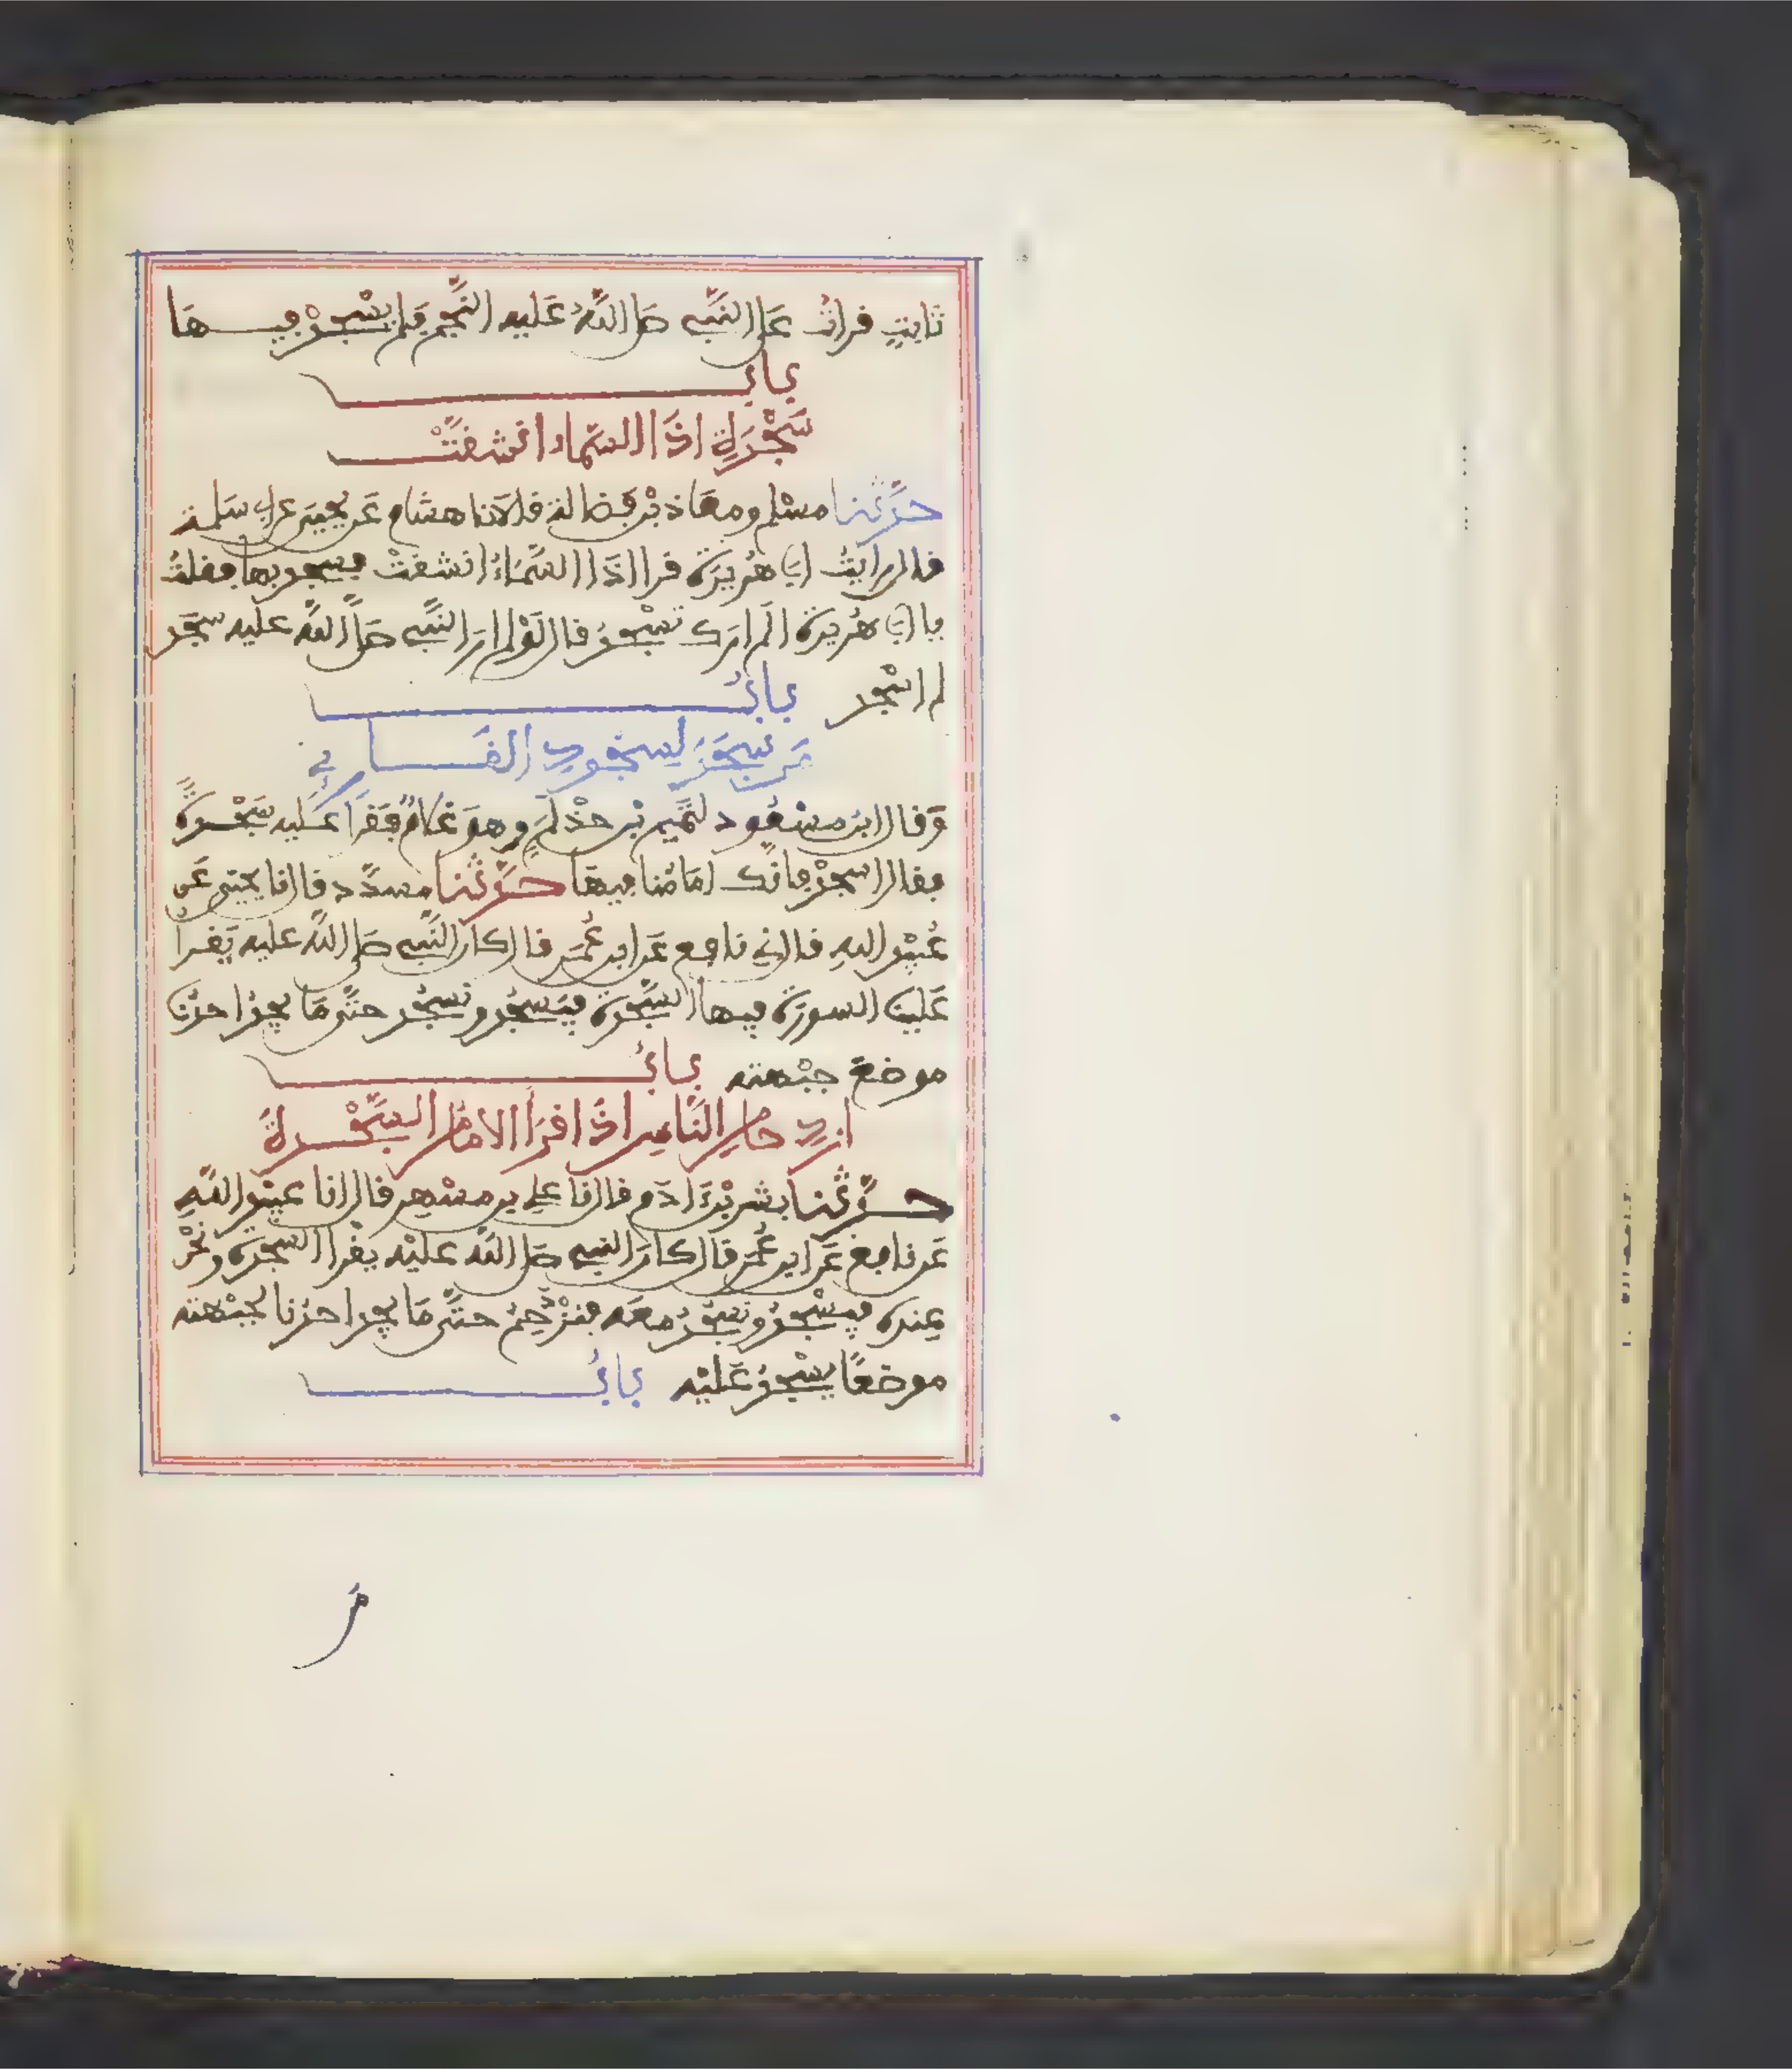 ثابتٍ قرأتُ علَى النَّبي صلى اللَّهُ عَليه النَّجم فَلم يسْجدْ فيها
بابُ
سَجْدَةِ اذَا السَّماء انْشَقَّتْ
حدَّثنا مسْلم ومعَاذ بْن فَضالة قالاَ نا هشام عَن يحيَى عن ابي سَلمة
قال رايتُ ابَي هُريرَة قرا اذَا السَّمَاءُ انشقتْ فسجد بها فقلتُ
يا ابَي هُريرَة الَم ارَك تسْجدُ قال لَوْ لم ارَ النَّبي صلَّى اللَّه عليه سجَد
لم اسْجد بابُ
مَن سَجَدَ لِسجُودِ القَاري
وَقال ابن مسْعُود لتَميم بْن حذْلَمٍ وهوَ غُلامٌ فقرَأ عَليه سَجْدةً
فقال اسجدْ فانَّك امَامُنا فيهَا حدَّثنا مسدَّد قال نا يحيى عَن
عُبَيْد اللهِ قال ني نافع عَن ابن عُمَر قال كان النَّبي صلى اللَّه عليه يَقرأ
عَلينَا السورَة فيها السَّجْدة فيَسجُد ونسجُد حتَّى مَا يجدُ احدُنا
موضعَ جبْهته بابُ
ازدِحامِ النَّاسِ اذَا قرَأ الامَامُ السَّجْدةَ
حدَّثنا بشر بْن ءَادَم قال نا علي بن مسْهِر قال انا عبَيْد اللَّهِ
عَن نافع عَن ابن عُمَر قال كانَ النبي صلى اللَّه عليْه يقرا السجْدَة ونحْن
عِندَه فيسْجدُ ونسْجُدُ معَه فنَزْدَحِمُ حتَّى مَا يجد احدُنا لجبْهته
موضعًا يسْجدُ عَليْه بابُ
مَن